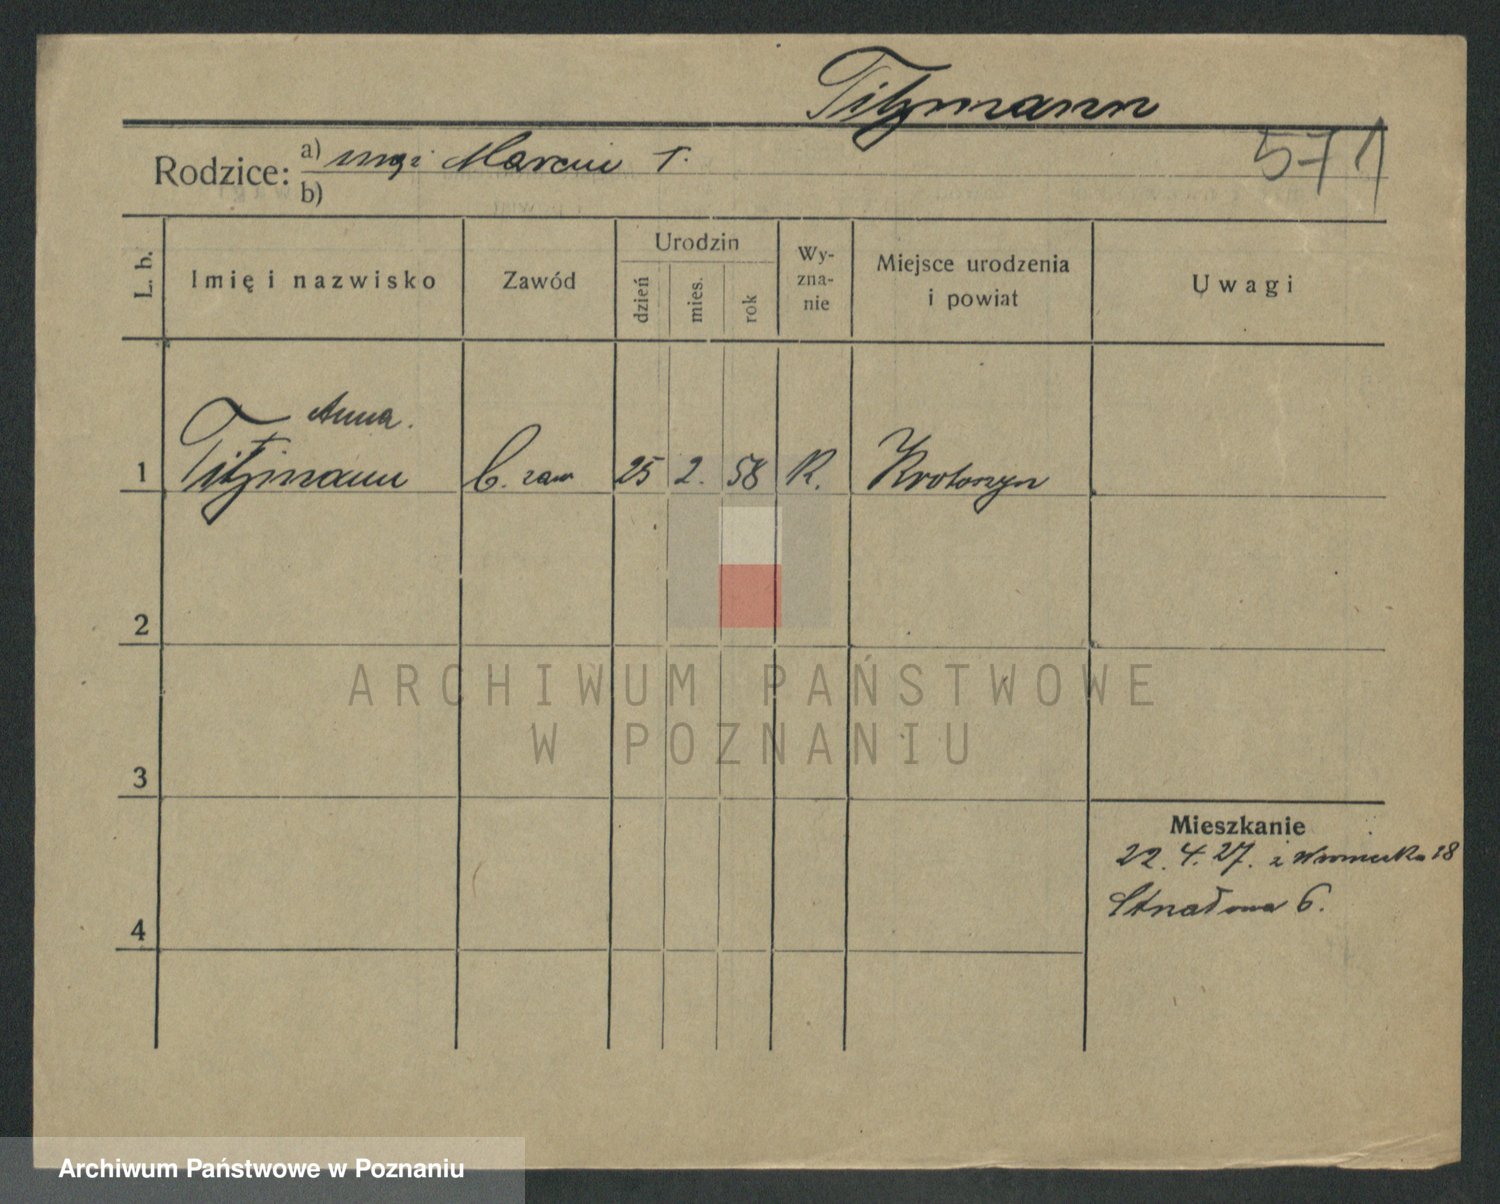 Titzmann
Rodzice: a) mąż Marcin T.
b)
571
L. b.
Imię i nazwisko
Zawód
Urodzin
dzień
mies.
rok
Wy-
zna-
nie
Miejsce urodzenia
i powiat
Uwagi
Anna.
1 Titzmann b. zaw 25 2. 58 R. Krotoszyn
2
ARCHIWUM PAŃSTWOWE
W POZNANIU
3
Mieszkanie
22. 4. 27. z 18
6.
4
Archiwum Państwowe w Poznaniu